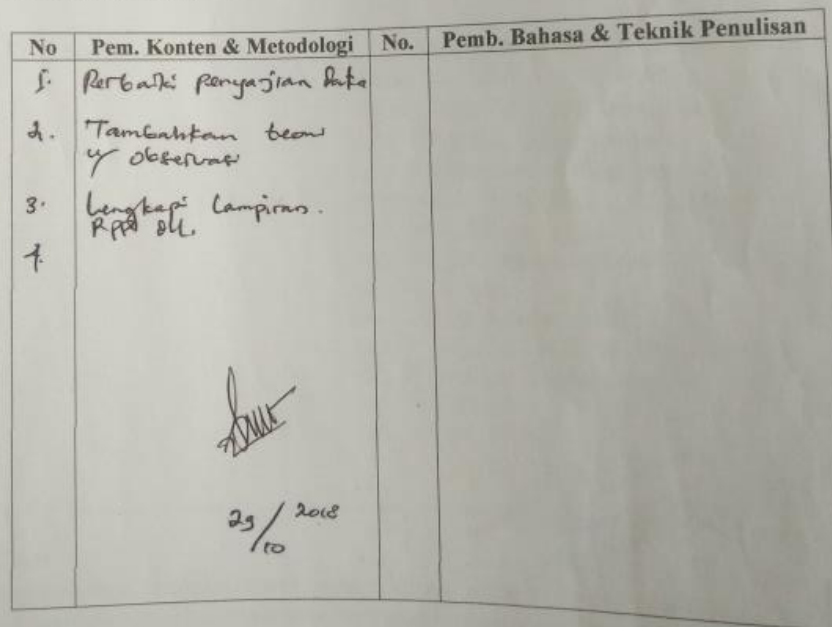 No Pem. Konten & Metodologi No. Pemb. Bahasa & Teknik Penulisan
1. Perbaiki penyajian data
2. Tambahkan teori
observasi
3. Lengkapi lampiran.
RPP dll.
4.
29/10 2018